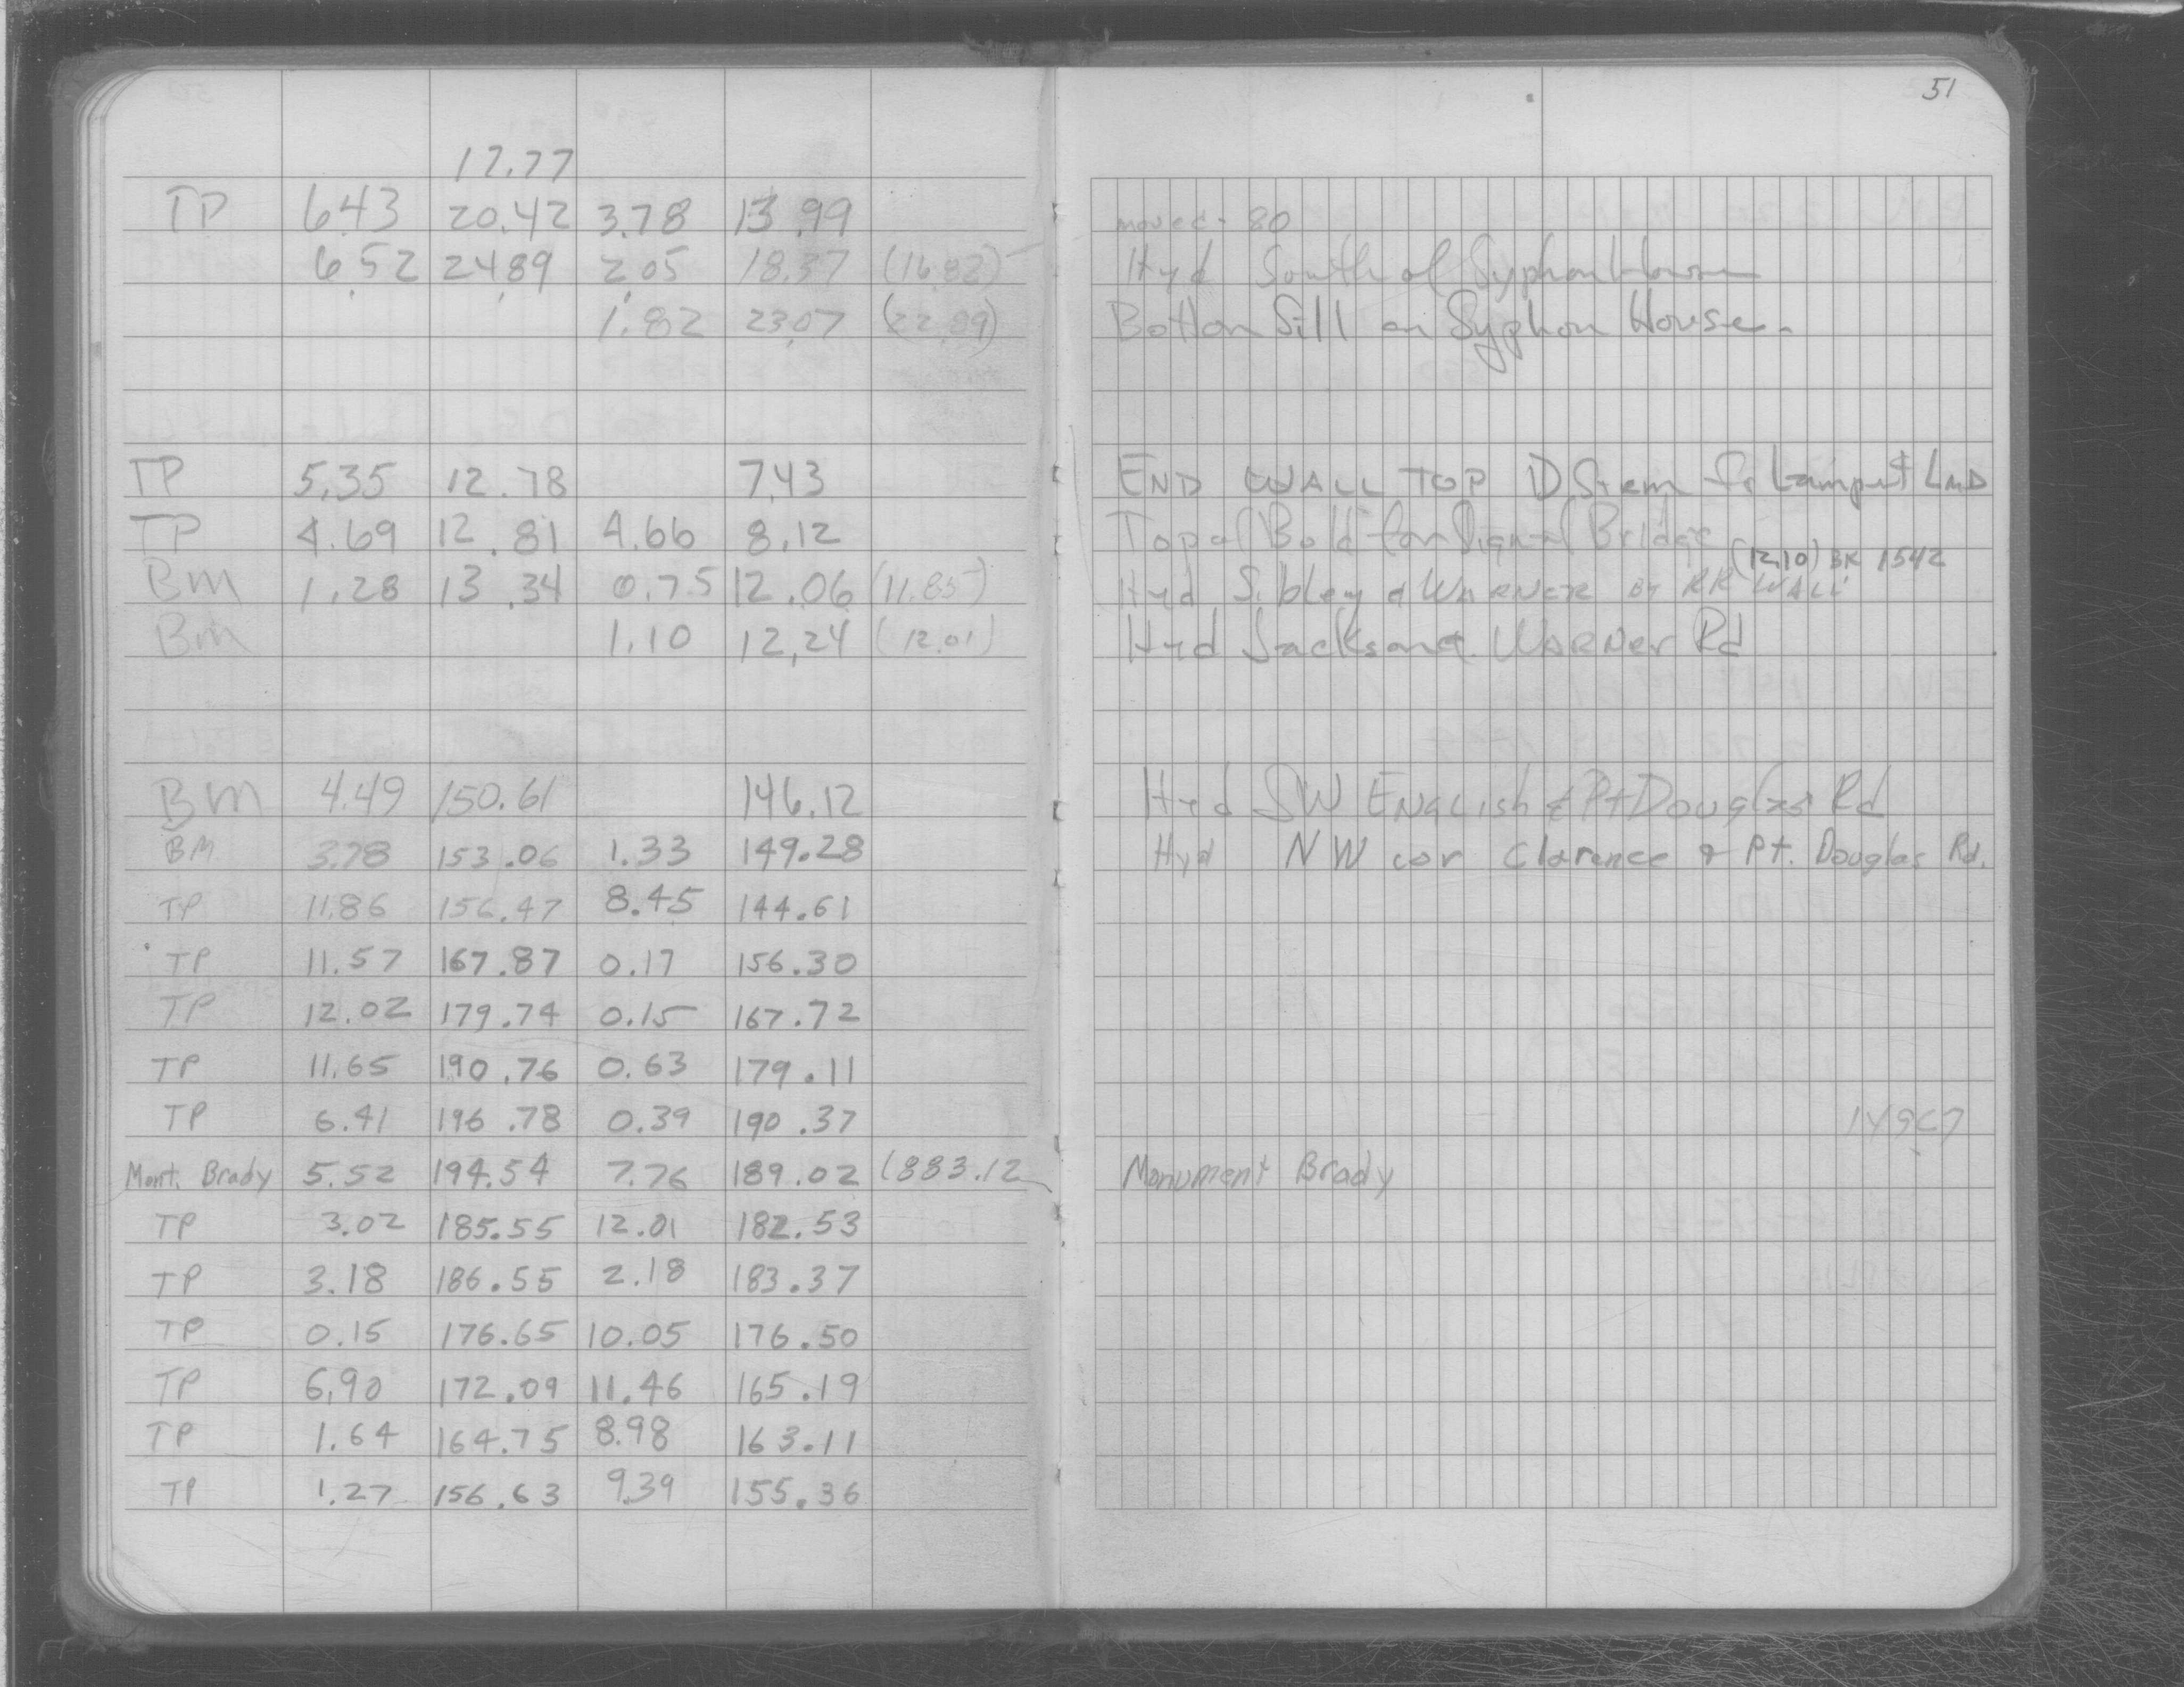 51
12.77
TP 6.43 20.42 3.78 13.99 moved - 80
6.52 24.89 2.05 18.37 (16.82) Hyd South of Syphon House
1.82 23.07 (22.89) Bottom Sill on Syphon House.
TP 5.35 12.78 7.43 END WALL TOP D. Stem
TP 4.69 12.81 4.66 8.12 Top of Bolt for Signal Bridge
(12.10) BK 1542
Bm 1.28 13.34 0.75 12.06 (11.85) Hyd Sibley & WARNER BY RR WALL
Bm 1.10 12.24 (12.01) Hyd Jackson & WARNer Rd
BM 4.49 150.61 146.12 Hyd SW ENGLISH & Pt Douglas Rd
BM 3.78 153.06 1.33 149.28 Hyd NW cor Clarence & Pt. Douglas Rd.
TP 11.86 156.47 8.45 144.61
TP 11.57 167.87 0.17 156.30
TP 12.02 179.74 0.15 167.72
TP 11.65 190.76 0.63 179.11
TP 6.41 196.78 0.39 190.37
Mont. Brady 5.52 194.54 7.76 189.02 (883.12 Monument Brady
TP 3.02 185.55 12.01 182.53
TP 3.18 186.55 2.18 183.37
TP 0.15 176.65 10.05 176.50
TP 6.90 172.09 11.46 165.19
TP 1.64 164.75 8.98 163.11
TP 1.27 156.63 9.39 155.36